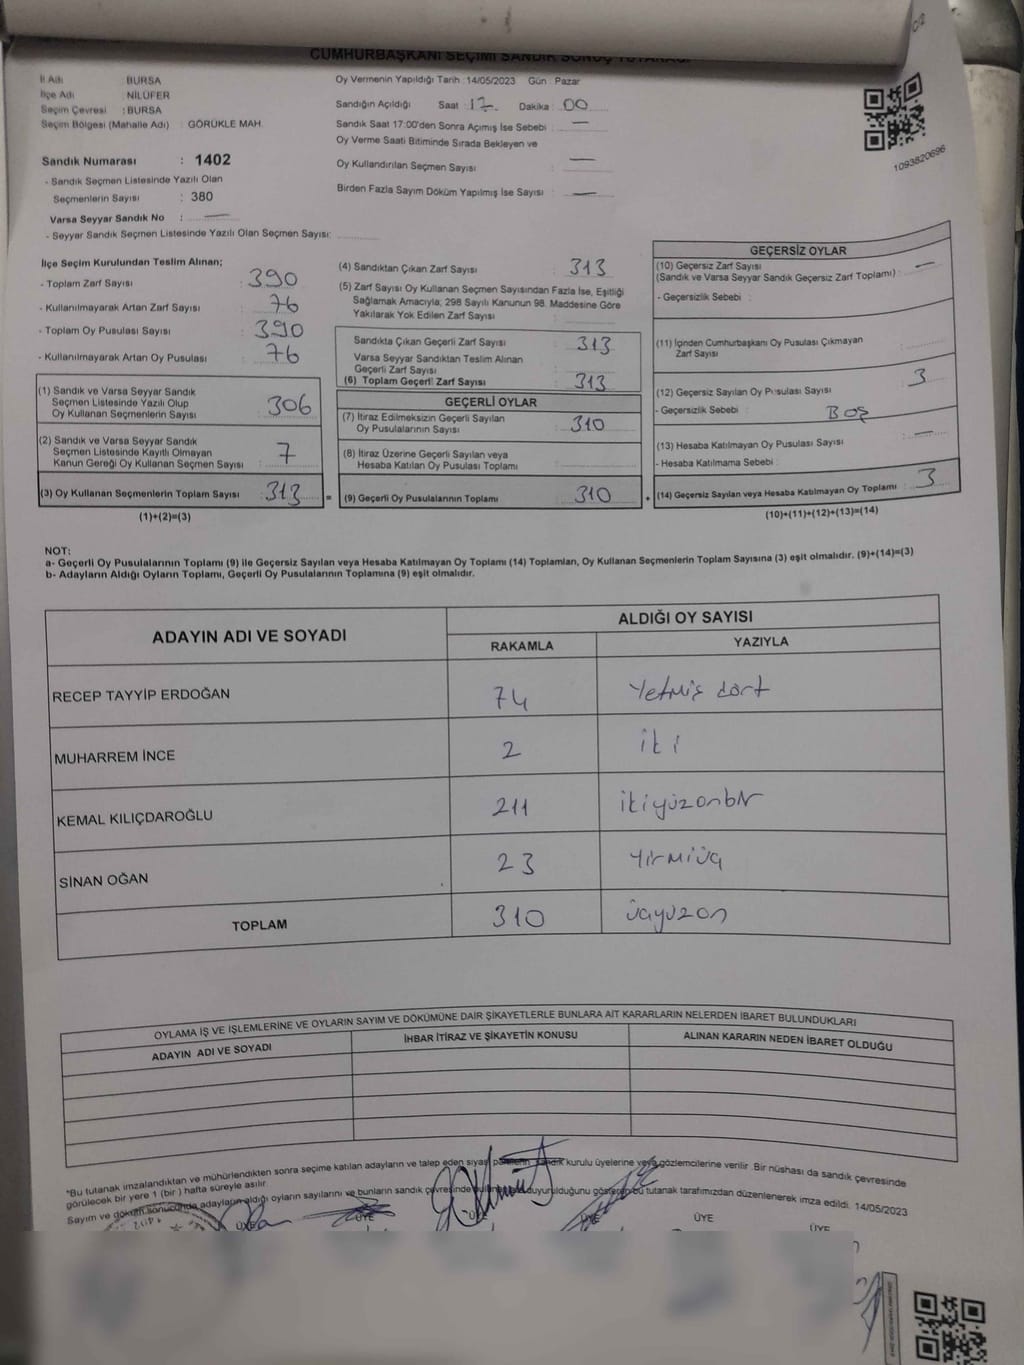 CUMHURBAŞKANI SEÇİMİ SANDIK SONUÇ TUTANAĞI
C/2
İl Adı : BURSA
İlçe Adı : NİLÜFER
Seçim Çevresi : BURSA
Seçim Bölgesi (Mahalle Adı) : GÖRÜKLE MAH.
Sandık Numarası : 1402
- Sandık Seçmen Listesinde Yazılı Olan
Seçmenlerin Sayısı : 380
Varsa Seyyar Sandık No : —
- Seyyar Sandık Seçmen Listesinde Yazılı Olan Seçmen Sayısı:
Oy Vermenin Yapıldığı Tarih : 14/05/2023 Gün : Pazar
Sandığın Açıldığı Saat : 17 Dakika : 00
Sandık Saat 17:00'den Sonra Açımış İse Sebebi : —
Oy Verme Saati Bitiminde Sırada Bekleyen ve
Oy Kullandırılan Seçmen Sayısı : —
Birden Fazla Sayım Döküm Yapılmış İse Sayısı : —
1093820696
İlçe Seçim Kurulundan Teslim Alınan;
- Toplam Zarf Sayısı : 390
- Kullanılmayarak Artan Zarf Sayısı : 76
- Toplam Oy Pusulası Sayısı : 390
- Kullanılmayarak Artan Oy Pusulası : 76
(1) Sandık ve Varsa Seyyar Sandık
Seçmen Listesinde Yazılı Olup
Oy Kullanan Seçmenlerin Sayısı : 306
(2) Sandık ve Varsa Seyyar Sandık
Seçmen Listesinde Kayıtlı Olmayan
Kanun Gereği Oy Kullanan Seçmen Sayısı : 7
(3) Oy Kullanan Seçmenlerin Toplam Sayısı : 313
(1)+(2)=(3)
(4) Sandıktan Çıkan Zarf Sayısı : 313
(5) Zarf Sayısı Oy Kullanan Seçmen Sayısından Fazla İse, Eşitliği
Sağlamak Amacıyla; 298 Sayılı Kanunun 98. Maddesine Göre
Yakılarak Yok Edilen Zarf Sayısı :
Sandıkta Çıkan Geçerli Zarf Sayısı : 313
Varsa Seyyar Sandıktan Teslim Alınan
Geçerli Zarf Sayısı :
(6) Toplam Geçerli Zarf Sayısı : 313
GEÇERLİ OYLAR
(7) İtiraz Edilmeksizin Geçerli Sayılan
Oy Pusulalarının Sayısı : 310
(8) İtiraz Üzerine Geçerli Sayılan veya
Hesaba Katılan Oy Pusulası Toplamı :
= (9) Geçerli Oy Pusulalarının Toplamı : 310
GEÇERSİZ OYLAR
(10) Geçersiz Zarf Sayısı
(Sandık ve Varsa Seyyar Sandık Geçersiz Zarf Toplamı) : —
- Geçersizlik Sebebi :
(11) İçinden Cumhurbaşkanı Oy Pusulası Çıkmayan
Zarf Sayısı :
(12) Geçersiz Sayılan Oy Pusulası Sayısı : 3
- Geçersizlik Sebebi : BOŞ
(13) Hesaba Katılmayan Oy Pusulası Sayısı : —
- Hesaba Katılmama Sebebi :
+ (14) Geçersiz Sayılan veya Hesaba Katılmayan Oy Toplamı : 3
(10)+(11)+(12)+(13)=(14)
NOT:
a- Geçerli Oy Pusulalarının Toplamı (9) ile Geçersiz Sayılan veya Hesaba Katılmayan Oy Toplamı (14) Toplamları, Oy Kullanan Seçmenlerin Toplam Sayısına (3) eşit olmalıdır. (9)+(14)=(3)
b- Adayların Aldığı Oyların Toplamı, Geçerli Oy Pusulalarının Toplamına (9) eşit olmalıdır.
ADAYIN ADI VE SOYADI
ALDIĞI OY SAYISI
RAKAMLA YAZIYLA
RECEP TAYYİP ERDOĞAN 74 Yetmiş dört
MUHARREM İNCE 2 iki
KEMAL KILIÇDAROĞLU 211 ikiyüzonbir
SİNAN OĞAN 23 Yirmiüç
TOPLAM 310 üçyüzon
OYLAMA İŞ VE İŞLEMLERİNE VE OYLARIN SAYIM VE DÖKÜMÜNE DAİR ŞİKAYETLERLE BUNLARA AİT KARARLARIN NELERDEN İBARET BULUNDUKLARI
ADAYIN ADI VE SOYADI İHBAR İTİRAZ VE ŞİKAYETİN KONUSU ALINAN KARARIN NEDEN İBARET OLDUĞU
*Bu tutanak imzalandıktan ve mühürlendikten sonra seçime katılan adayların ve talep eden siyasi partilerin sandık kurulu üyelerine veya gözlemcilerine verilir. Bir nüshası da sandık çevresinde
görülecek bir yere 1 (bir ) hafta süreyle asılır.
Sayım ve döküm sonucunda adayların aldığı oyların sayılarını ve bunların sandık çevresinde duyurulduğunu gösteren bu tutanak tarafımızdan düzenlenerek imza edildi. 14/05/2023
ÜYE ÜYE ÜYE ÜYE ÜYE ÜYE